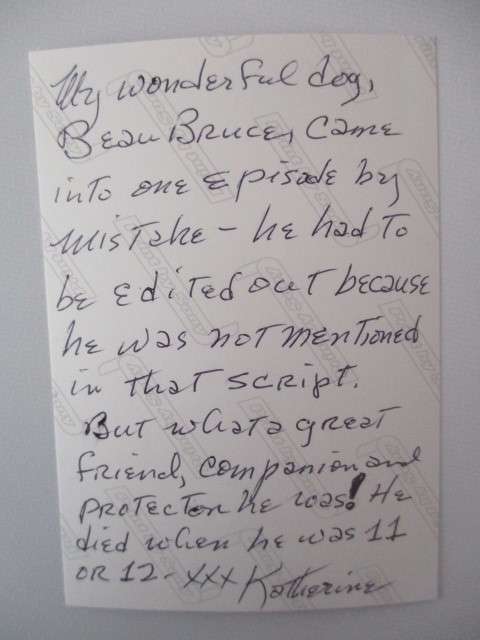 My wonderful dog,
Beau Bruce, came
into one episode by
mistake - he had to
be edited out because
he was not mentioned
in that script.
But what a great
friend, companion and
protector he was! He
died when he was 11
or 12 - xxx Katherine